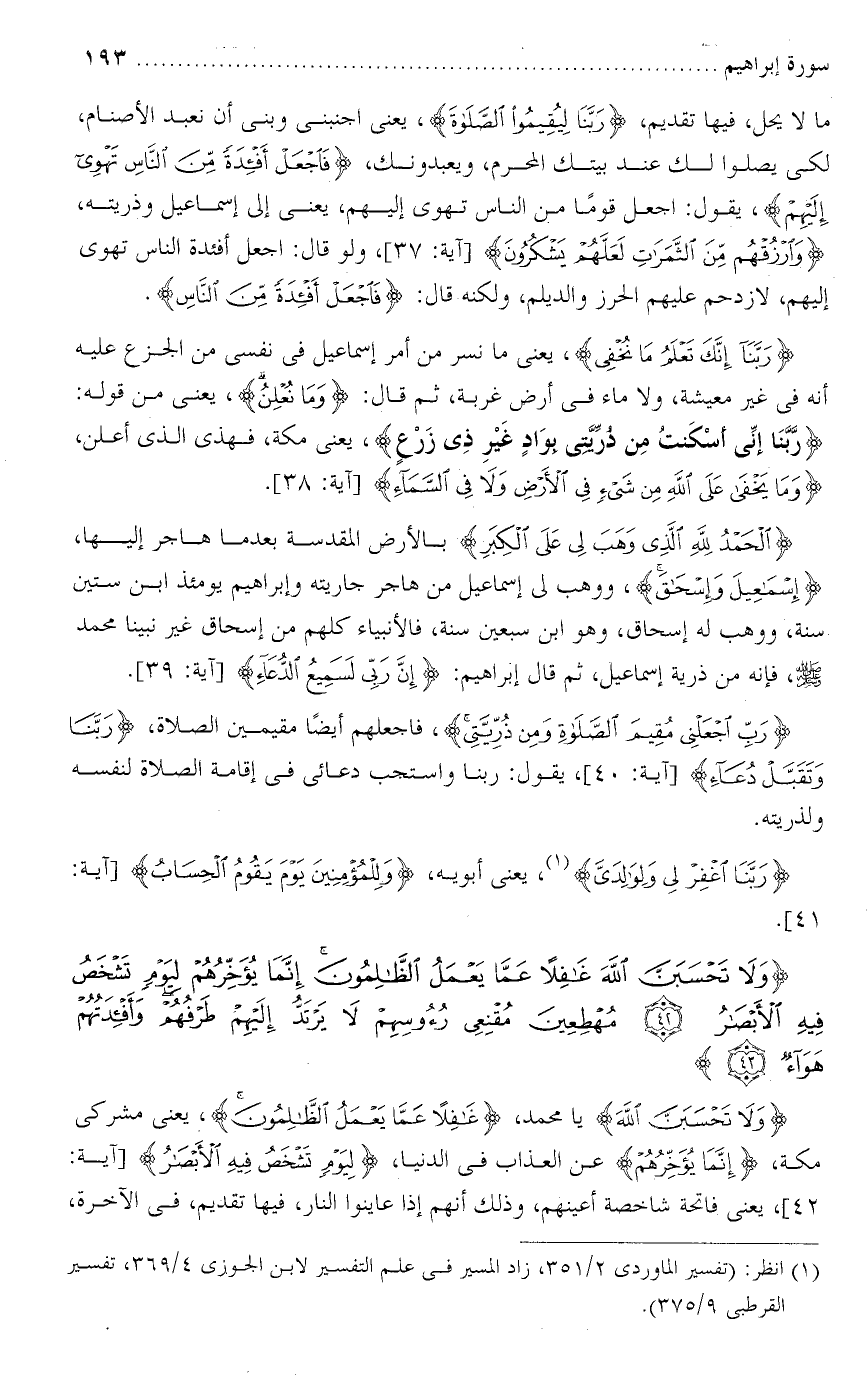 سورة إبراهيم ........................................................................ ١٩٣
ما لا يحل، فيها تقديم، ﴿رَبَّنَا لِيُقِيمُوا۟ ٱلصَّلَوٰةَ﴾، يعنى اجنبنى وبنى أن نعبد الأصنام،
لكى يصلوا لك عند بيتك المحرم، ويعبدونك، ﴿فَٱجْعَلْ أَفْـِٔدَةً مِّنَ ٱلنَّاسِ تَهْوِىٓ
إِلَيْهِمْ﴾، يقول: اجعل قومًا من الناس تهوى إليهم، يعنى إلى إسماعيل وذريته،
﴿وَٱرْزُقْهُم مِّنَ ٱلثَّمَرَٰتِ لَعَلَّهُمْ يَشْكُرُونَ﴾ [آية: ٣٧]، ولو قال: اجعل أفئدة الناس تهوى
إليهم، لازدحم عليهم الحرز والديلم، ولكنه قال: ﴿فَٱجْعَلْ أَفْـِٔدَةً مِّنَ ٱلنَّاسِ﴾.
﴿رَبَّنَآ إِنَّكَ تَعْلَمُ مَا نُخْفِى﴾، يعنى ما نسر من أمر إسماعيل فى نفسى من الجزع عليه
أنه فى غير معيشة، ولا ماء فى أرض غربة، ثم قال: ﴿وَمَا نُعْلِنُ ۗ﴾، يعنى من قوله:
﴿رَّبَّنَا إِنِّى أَسْكَنتُ مِن ذُرِّيَّتِى بِوَادٍ غَيْرِ ذِى زَرْعٍ﴾، يعنى مكة، فهذى الذى أعلن،
﴿وَمَا يَخْفَىٰ عَلَى ٱللَّهِ مِن شَىْءٍ فِى ٱلْأَرْضِ وَلَا فِى ٱلسَّمَآءِ﴾ [آية: ٣٨].
﴿ٱلْحَمْدُ لِلَّهِ ٱلَّذِى وَهَبَ لِى عَلَى ٱلْكِبَرِ﴾ بالأرض المقدسة بعدما هاجر إليها،
﴿إِسْمَٰعِيلَ وَإِسْحَٰقَ ۚ﴾، ووهب لى إسماعيل من هاجر جاريته وإبراهيم يومئذ ابن ستين
سنة، ووهب له إسحاق، وهو ابن سبعين سنة، فالأنبياء كلهم من إسحاق غير نبينا محمد
ﷺ، فإنه من ذرية إسماعيل، ثم قال إبراهيم: ﴿إِنَّ رَبِّى لَسَمِيعُ ٱلدُّعَآءِ﴾ [آية: ٣٩].
﴿رَبِّ ٱجْعَلْنِى مُقِيمَ ٱلصَّلَوٰةِ وَمِن ذُرِّيَّتِى ۚ﴾، فاجعلهم أيضًا مقيمين الصلاة، ﴿رَبَّنَا
وَتَقَبَّلْ دُعَآءِ﴾ [آية: ٤٠]، يقول: ربنا واستجب دعائى فى إقامة الصلاة لنفسه
ولذريته.
﴿رَبَّنَا ٱغْفِرْ لِى وَلِوَٰلِدَىَّ﴾(١)، يعنى أبويه، ﴿وَلِلْمُؤْمِنِينَ يَوْمَ يَقُومُ ٱلْحِسَابُ﴾ [آية:
٤١].
﴿وَلَا تَحْسَبَنَّ ٱللَّهَ غَٰفِلًا عَمَّا يَعْمَلُ ٱلظَّٰلِمُونَ ۚ إِنَّمَا يُؤَخِّرُهُمْ لِيَوْمٍ تَشْخَصُ
فِيهِ ٱلْأَبْصَٰرُ ٤٢ مُهْطِعِينَ مُقْنِعِى رُءُوسِهِمْ لَا يَرْتَدُّ إِلَيْهِمْ طَرْفُهُمْ ۖ وَأَفْـِٔدَتُهُمْ
هَوَآءٌ ٤٣ ﴾
﴿وَلَا تَحْسَبَنَّ ٱللَّهَ﴾ يا محمد، ﴿غَٰفِلًا عَمَّا يَعْمَلُ ٱلظَّٰلِمُونَ ۚ﴾، يعنى مشركى
مكة، ﴿إِنَّمَا يُؤَخِّرُهُمْ﴾ عن العذاب فى الدنيا، ﴿لِيَوْمٍ تَشْخَصُ فِيهِ ٱلْأَبْصَٰرُ﴾ [آية:
٤٢]، يعنى فاتحة شاخصة أعينهم، وذلك أنهم إذا عاينوا النار، فيها تقديم، فى الآخرة،
(١) انظر: (تفسير الماوردى ٣٥١/٢، زاد المسير فى علم التفسير لابن الجوزى ٣٦٩/٤، تفسير
القرطبى ٣٧٥/٩).